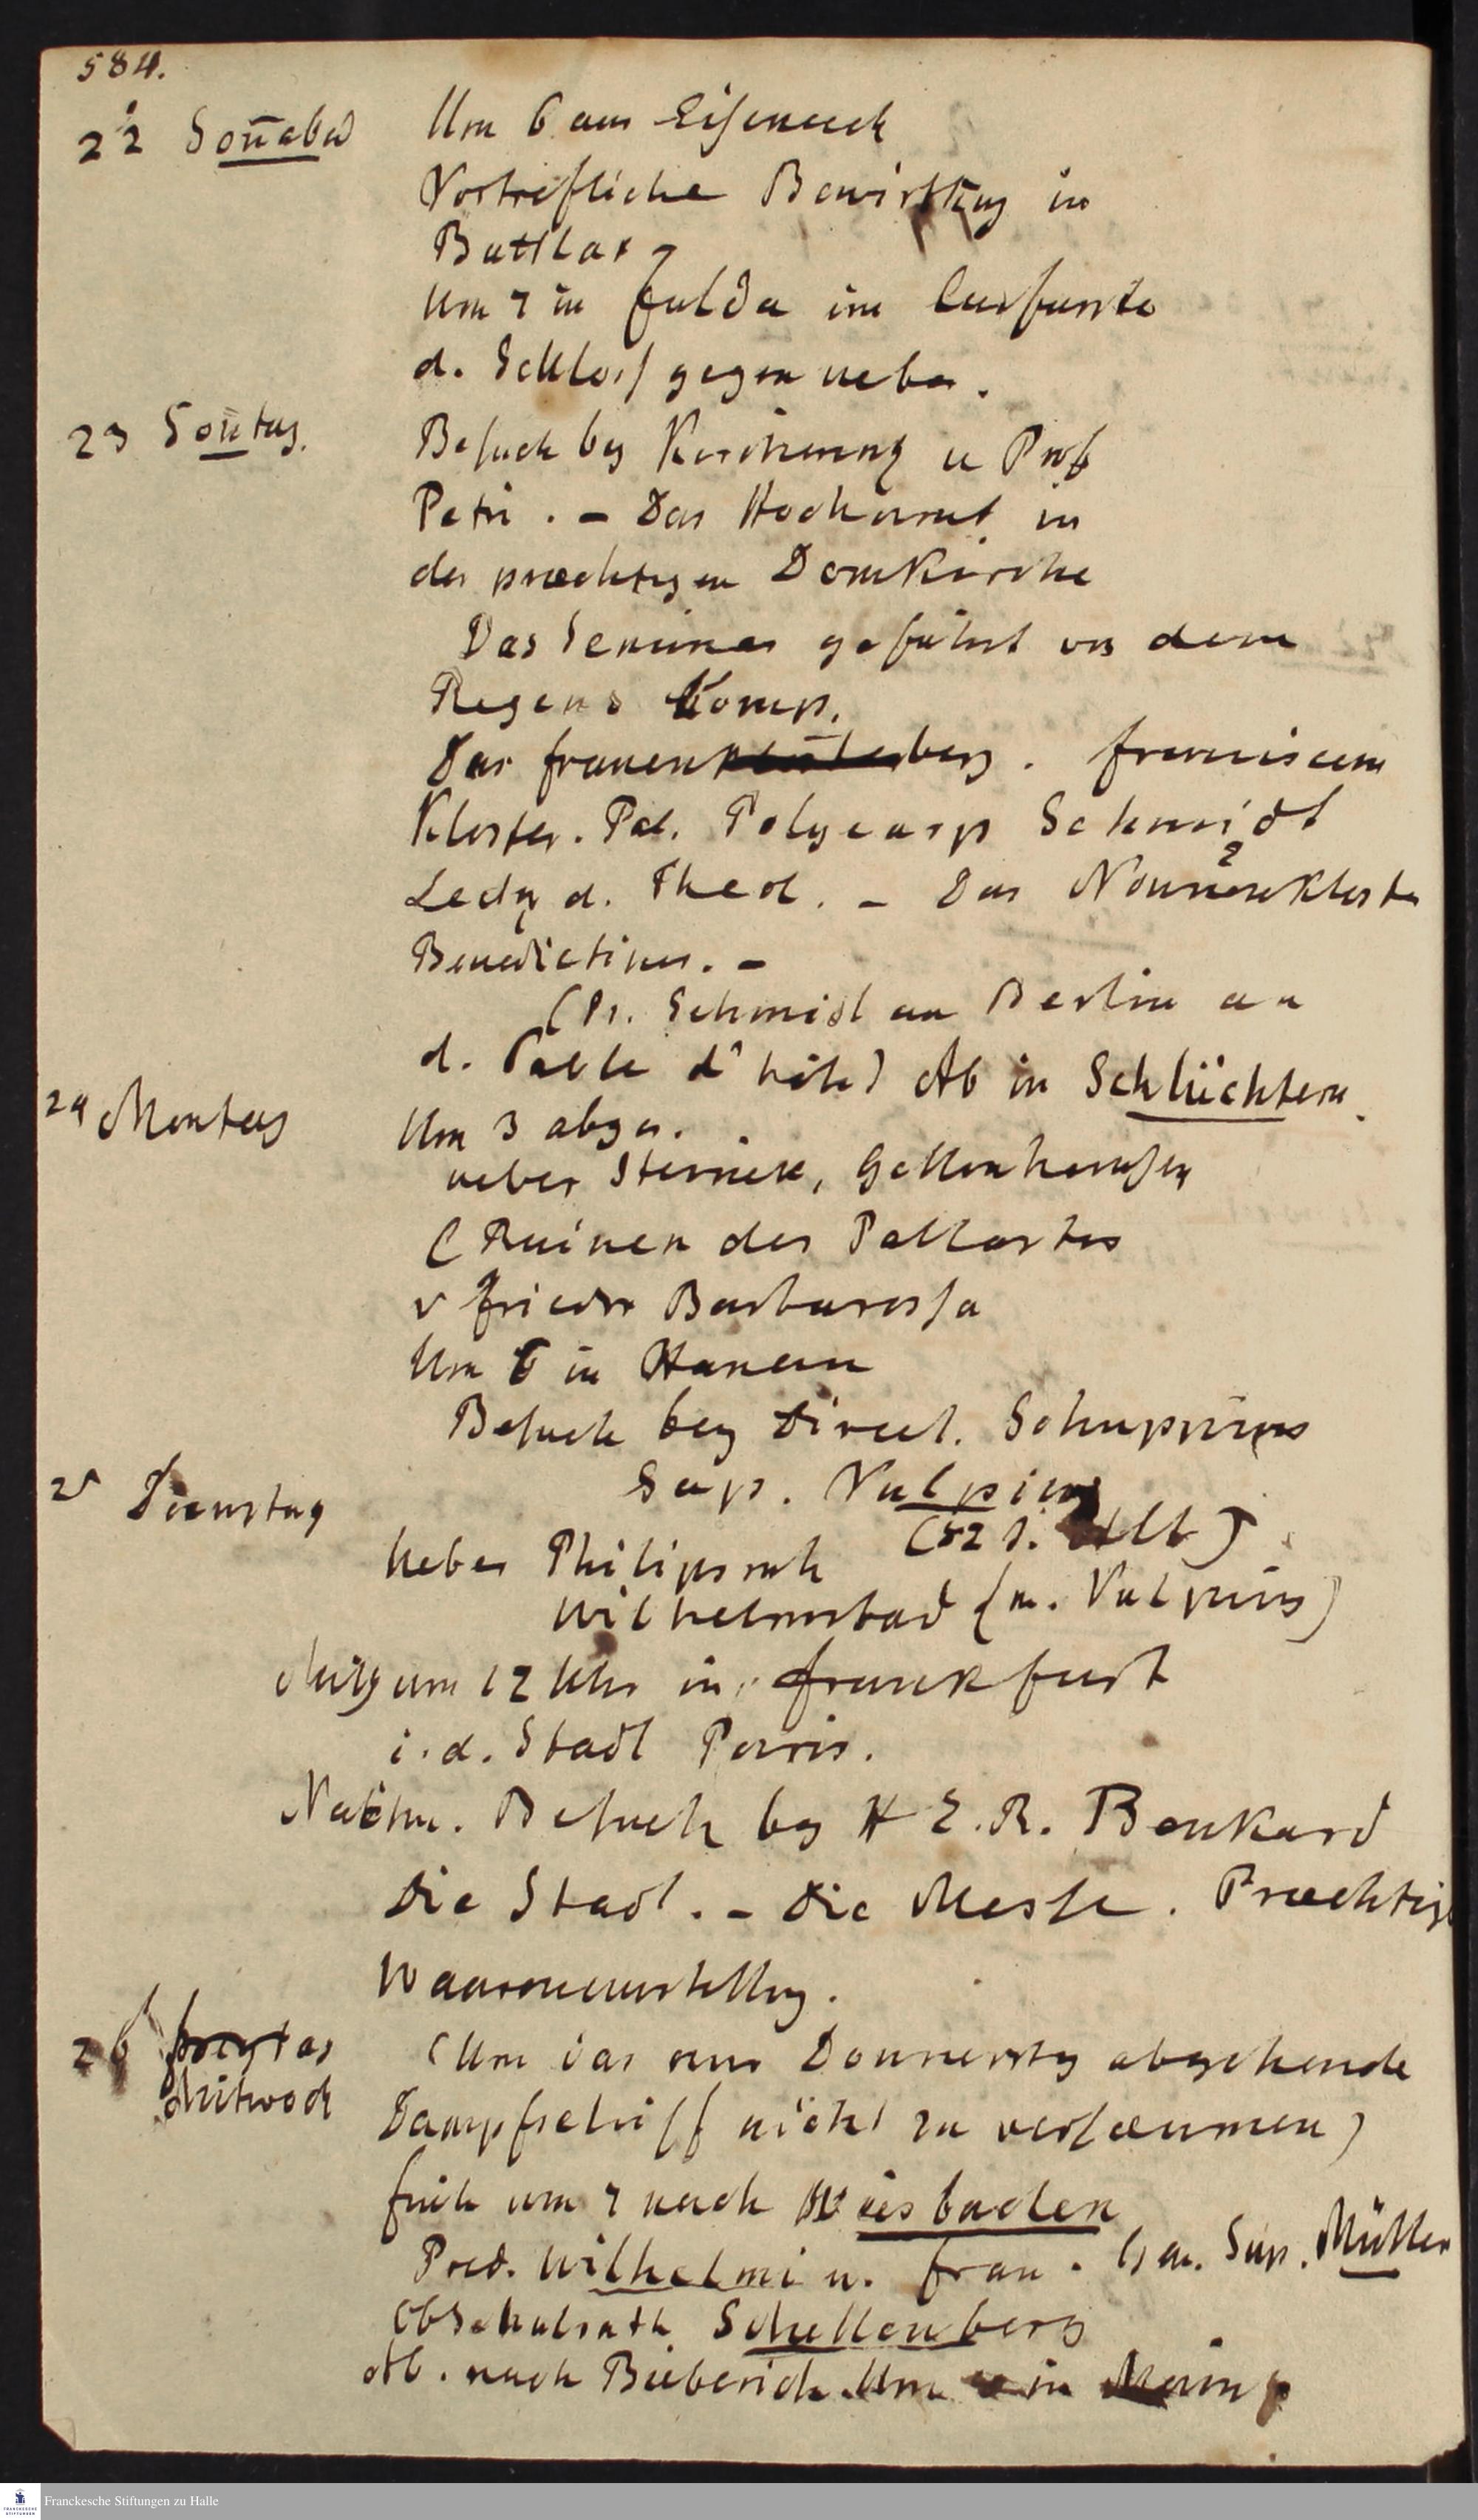 584.
22 Soñabd Um 6 aus Eisenach
Vortrefliche Bewirthg in
Buttlar
Um 7 in Fulda im Curfurste
d. Schloss gegen ueber.
23 Soñtag. Besuch bey u Prof
Petri. - Das Hochamt in
der praechtigen Domkirche
Das Seminar gefuhrt von dem
Regens Komp.
Das Frauenberg. Franciscan
Kloster. Pat. Polycarp Schmidt
Lector d. Theol. - Das Nonnenkloster
Benedictiner. -
(Pr. Schmidt aus Berlin an
d. Table d'hôte) Ab in Schlüchtern.
24 Montag Um 3 abger.
ueber Steinau, Gellenhausen
(Ruinen des Pallastes
v Friedr Barbarossa
Um 6 in Hanau
Besuch bey Direct. Schuppius
Sup. Vulpius
(82 J. Alt)
25 Dienstag Ueber Philipsruh
Wilhelmsbad (m. Vulpius)
Mittg um 12 Uhr in Frankfurt
i. d. Stadt Paris.
Nachm. Besuch bey H E. R. Benkard
Die Stadt. - Die Messe. Praechtige
Waarenausstellung.
26 Freytag (Um das nur Donnerstg abgehende
Mitwoch Dampfschiff nicht zu versaeumen)
frueh um 7 nach Wiesbaden
Pred. Wilhelmi u. Frau. Gen. Sup. Müller
ObSchulrath Schellenberg
Ab. nach Bieberich. Um in Mainz
Franckesche Stiftungen zu Halle